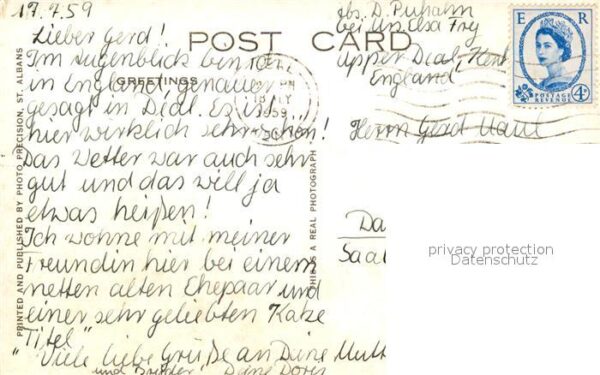 17.7.59
Lieber Gerd!
Im Augenblick bin ich
in England, genauer
gesagt in Dial. Es ist
hier wirklich sehr schön!
Das Wetter war auch sehr
gut und das will ja
etwas heißen!
Ich wohne mit meiner
Freundin hier bei einem
netten alten Ehepaar und
einer sehr geliebten Katze
"Titel"
Viele liebe Grüße an Deine Mutt
und Deine Doris
POST CARD
GREETINGS
PRINTED AND PUBLISHED BY PHOTO PRECISION, ST. ALBANS
THIS IS A REAL PHOTOGRAPH
abs. D. 
bei Frey
Upper Deal-Kent
England
E R
POSTAGE
REVENUE
4D
1959
Herrn Gerd
Da
Saal
privacy protection
Datenschutz